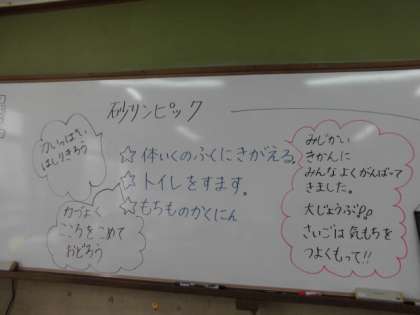 砂リンピック
力いっぱい
はしりきろう
☆体いくのふくにきがえる。
☆トイレをすます。
☆もちものかくにん
力づよく
こころをこめて
おどろう
みじかい
きかんに
みんなよくがんばって
きました。
大じょうぶ!!
さいごは気もちを
つよくもって!!